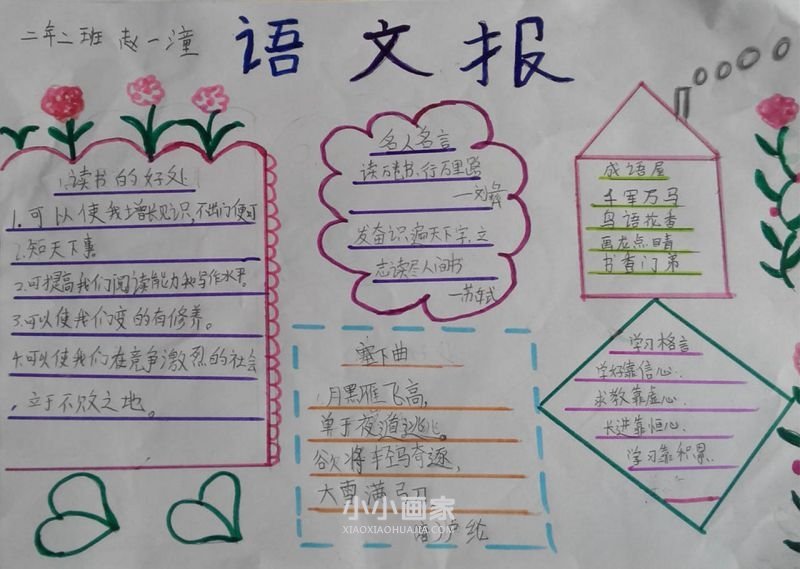 二年二班 赵一潼
语文报
读书的好处
1.可以使我增长见识,不出门便可
知天下事
2.可提高我们阅读能力和写作水平。
3.可以使我们变的有修养。
4.可以使我们在竞争激烈的社会
,立于不败之地。
名人名言
读万卷书,行万里路
—刘彝
发奋识遍天下字,立
志读尽人间书
—苏轼
成语屋
千军万马
鸟语花香
画龙点睛
书香门弟
塞下曲
月黑雁飞高,
单于夜遁逃。
欲将轻骑逐,
大雪满弓刀
卢纶
学习格言
学好靠信心.
求教靠虚心.
长进靠恒心.
学习靠积累.
小小画家
XIAOXIAOHUAJIA.COM